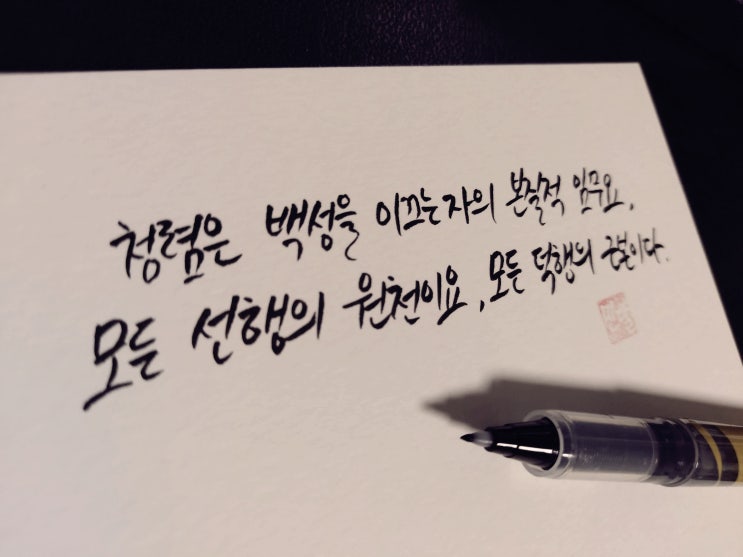 청렴은 백성을 이끄는자의 본질적 임무요,
모든 선행의 원천이요, 모든 덕행의 근본이다.